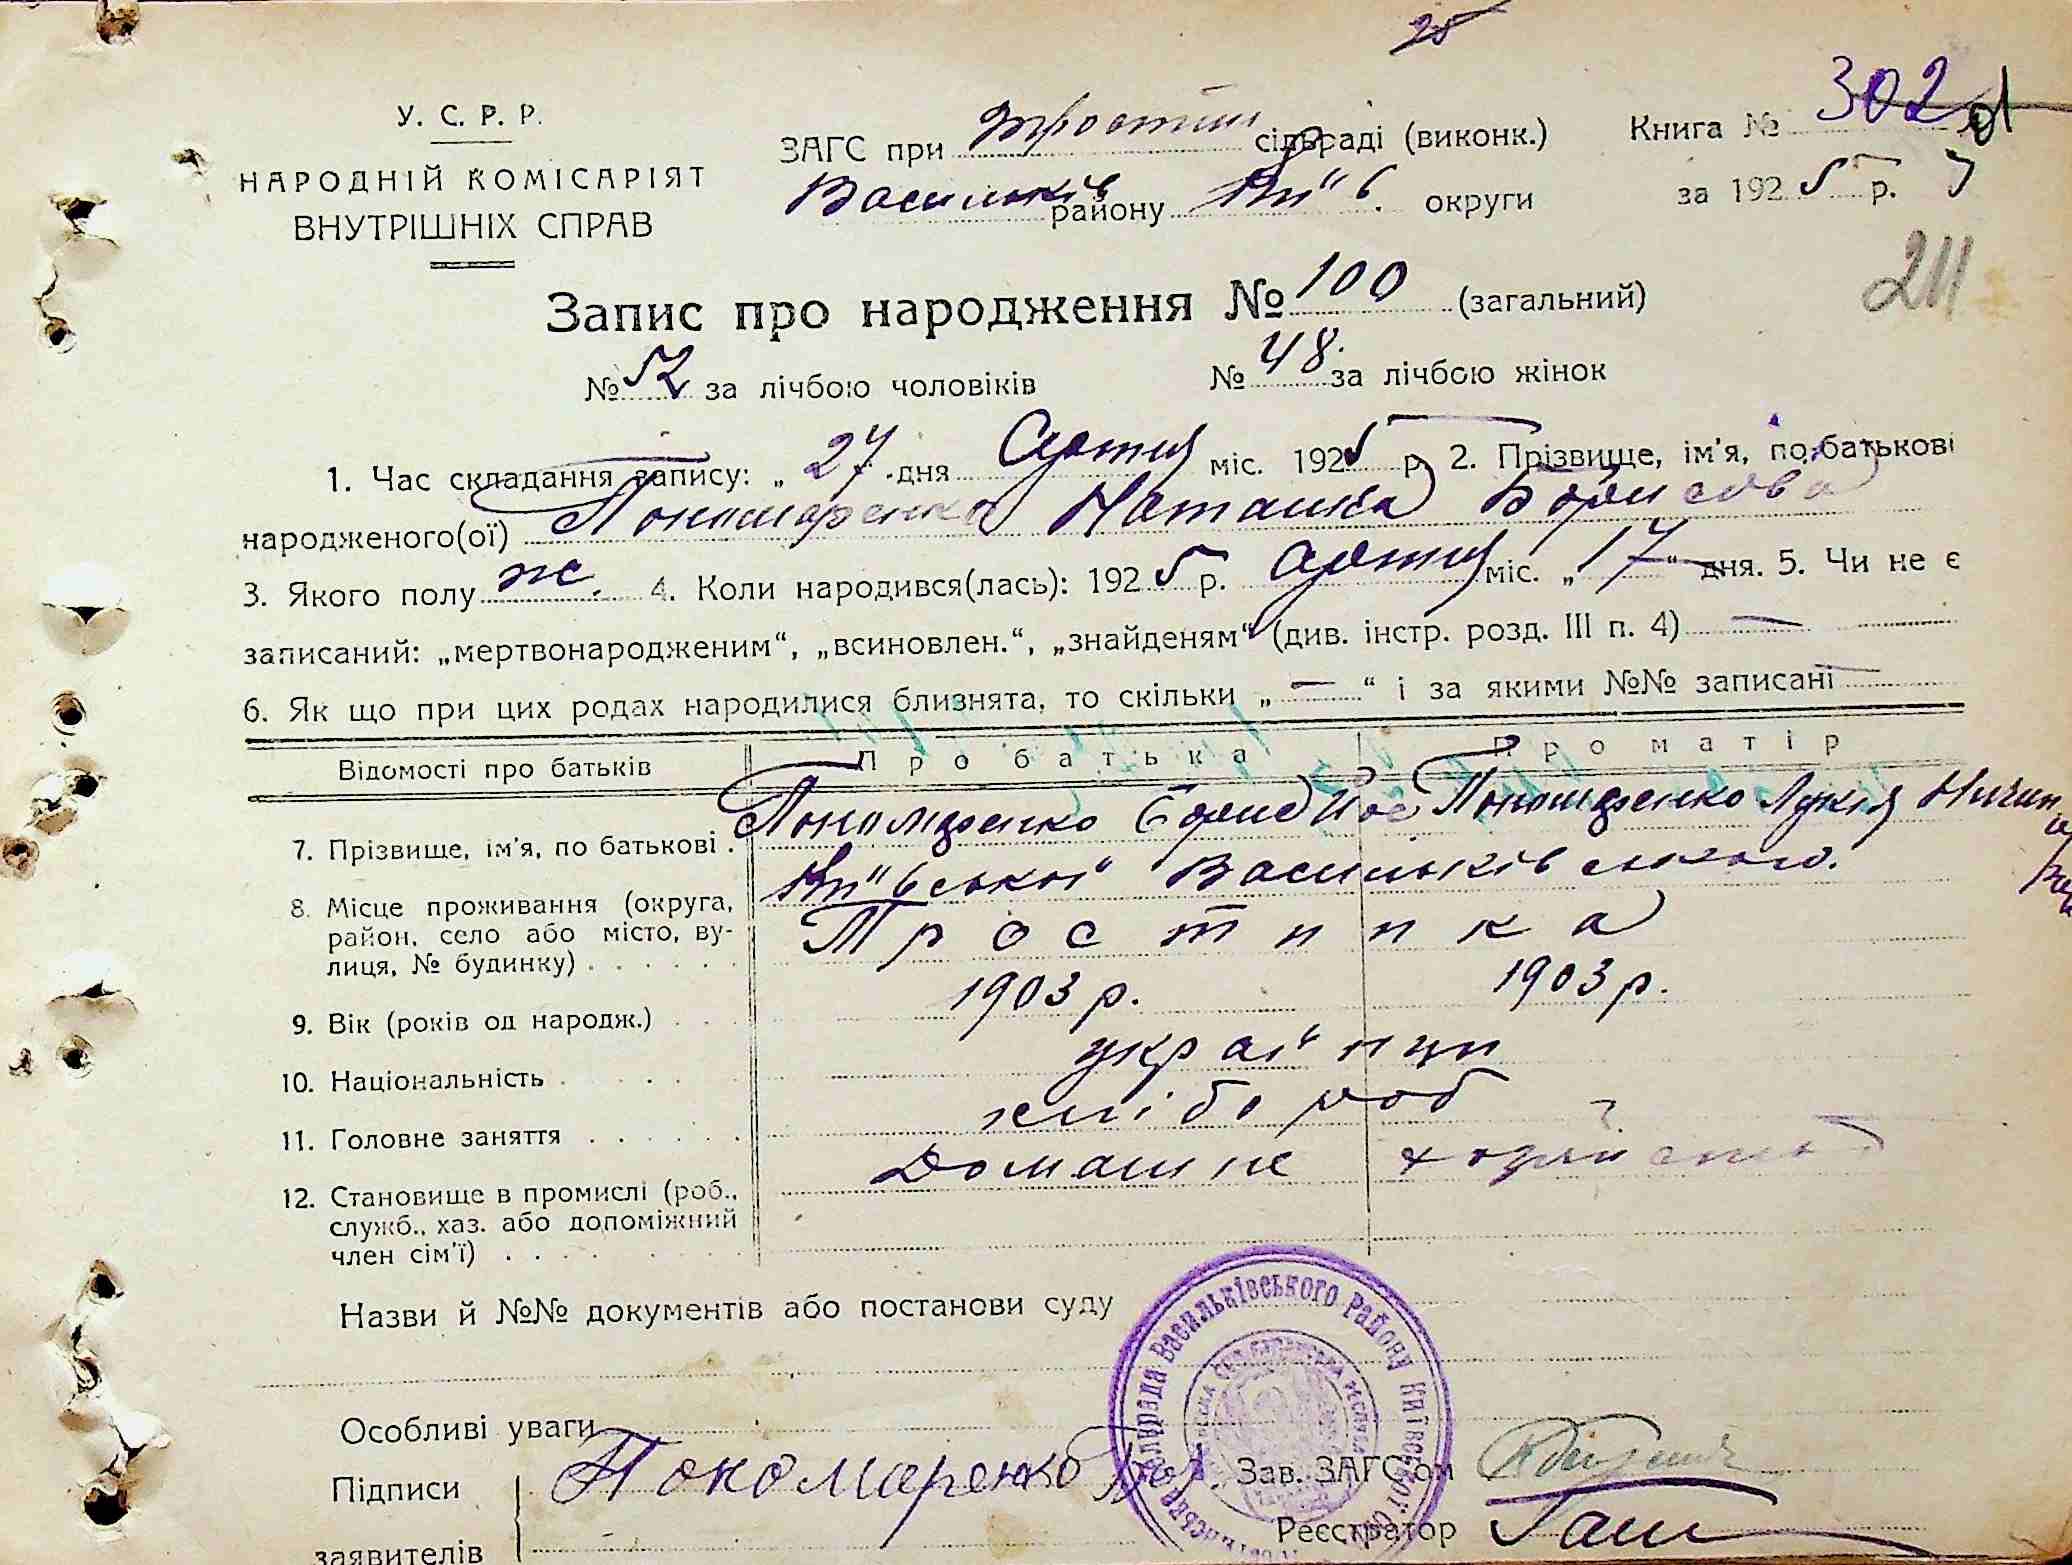 25
У. С. Р. Р.
НАРОДНІЙ КОМІСАРІЯТ
ВНУТРІШНІХ СПРАВ
ЗАГС при Тростин сільраді (виконк.)
Васильків району Київ. округи
Книга № 302
за 1925 р.
211
Запис про народження № 100 (загальний)
№ 52 за лічбою чоловіків № 48 за лічбою жінок
1. Час складання запису: „ 27 дня міс. 1925 р. 2. Прізвище, ім'я, по батькові
народженого(ої) Пономаренко Наташка Борисова
3. Якого полу ж. 4. Коли народився(лась): 1925 р. міс. „ 17 “ дня. 5. Чи не є
записаний: „мертвонародженим“, „всиновлен.“, „знайденям“ (див. інстр. розд. III п. 4) —
6. Як що при цих родах народилися близнята, то скільки „ — “ і за якими №№ записані —
Відомості про батьків Про батька Про матір
7. Прізвище, ім'я, по батькові . Пономаренко Борис Йос Пономаренко Лукія
8. Місце проживання (округа, Київської Васильківського.
район, село або місто, ву- Тростинка
лиця, № будинку) . . . . . .
9. Вік (років од народж.) . . . 1903 р. 1903 р.
10. Національність . . . . українци
11. Головне заняття . . . . . . хлібороб
12. Становище в промислі (роб., Домашне хозяйство
служб., хаз. або допоміжний
член сім'ї) . . . . . .
Назви й №№ документів або постанови суду
Особливі уваги
Підписи Пономаренко Бор. Зав. ЗАГС'ом
заявителів Реєстратор
Васильківського району Київської